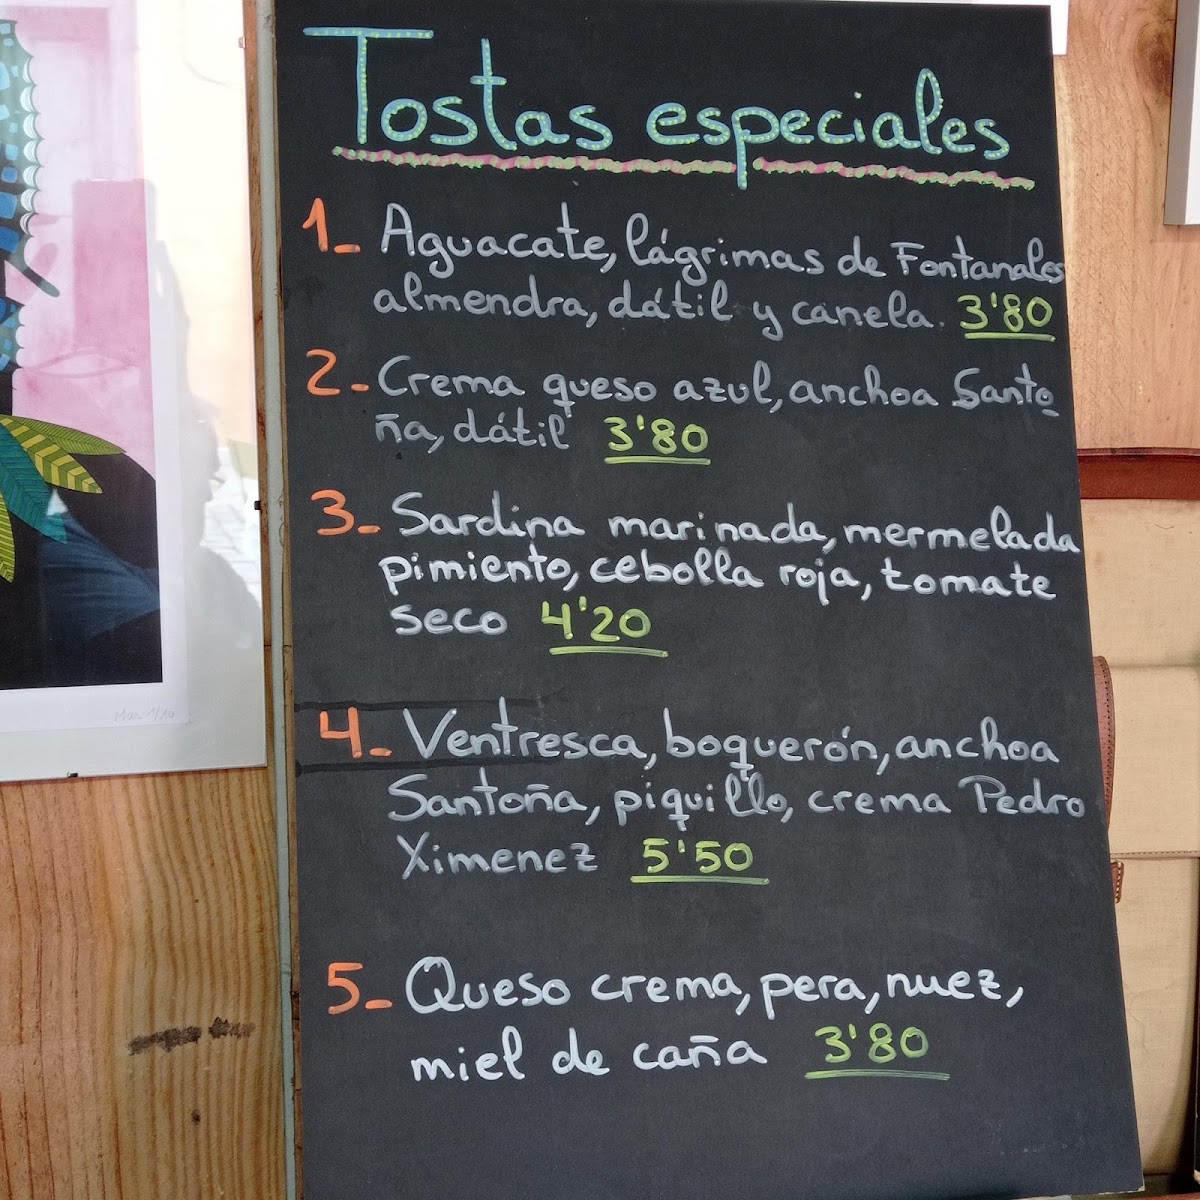 Tostas especiales
1- Aguacate, lágrimas de Fontanales
almendra, dátil y canela. 3'80
2- Crema queso azul, anchoa Santo
ña, dátil 3'80
3- Sardina marinada, mermelada
pimiento, cebolla roja, tomate
seco 4'20
4- Ventresca, boquerón, anchoa
Santoña, piquillo, crema Pedro
Ximenez 5'50
5- Queso crema, pera, nuez,
miel de caña 3'80